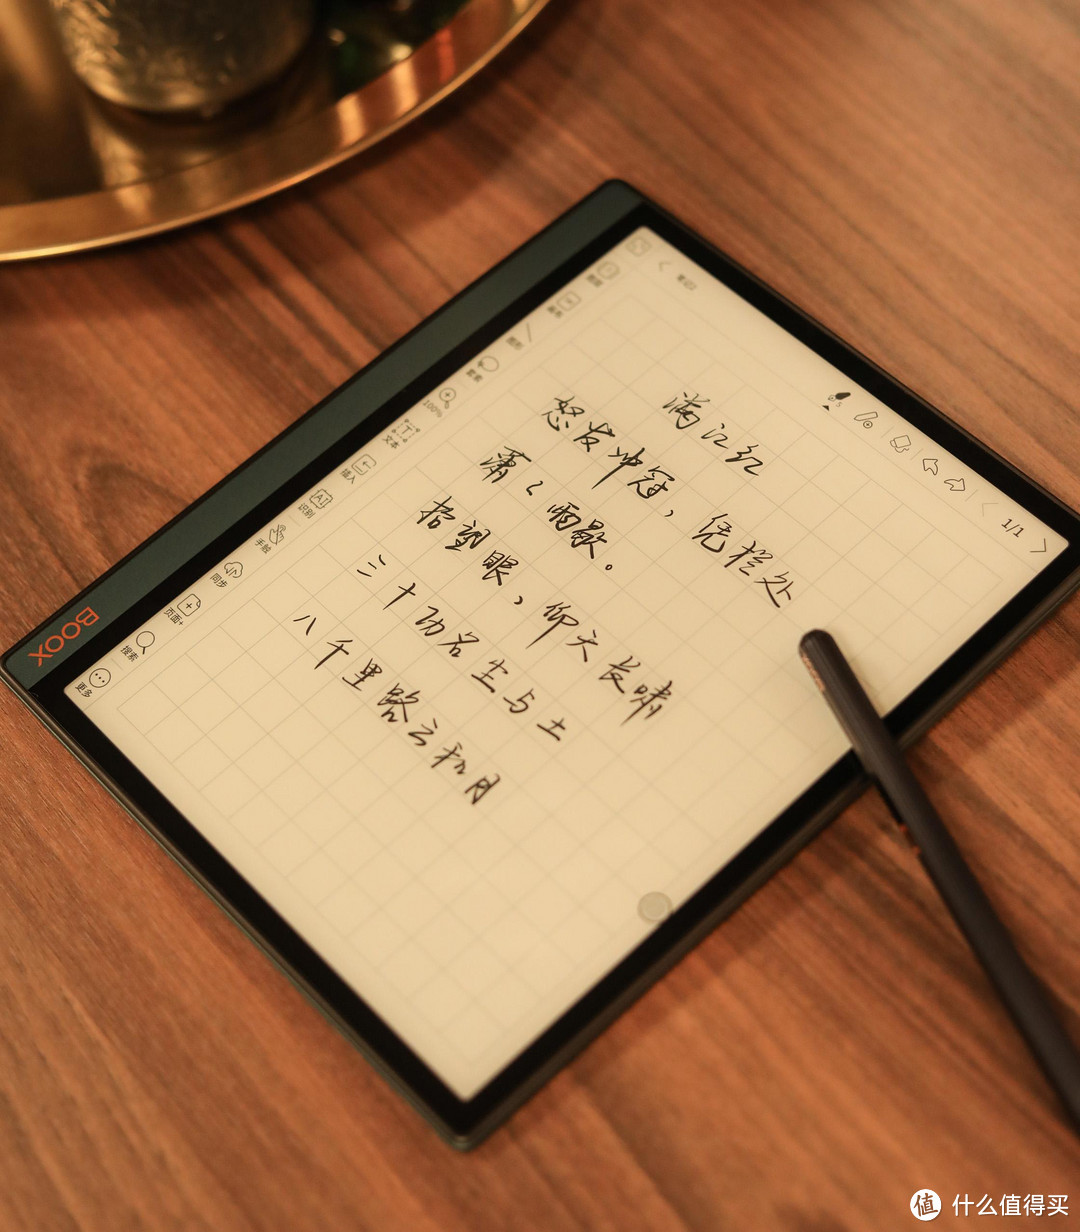 BOOX
1/1
图形
套索
100%
文本
插入
识别
手触
同步
页面+
搜索
更多
满江红
怒发冲冠，凭栏处
潇々雨歇。
抬望眼，仰天长啸
三十功名尘与土
八千里路云和月
值 什么值得买